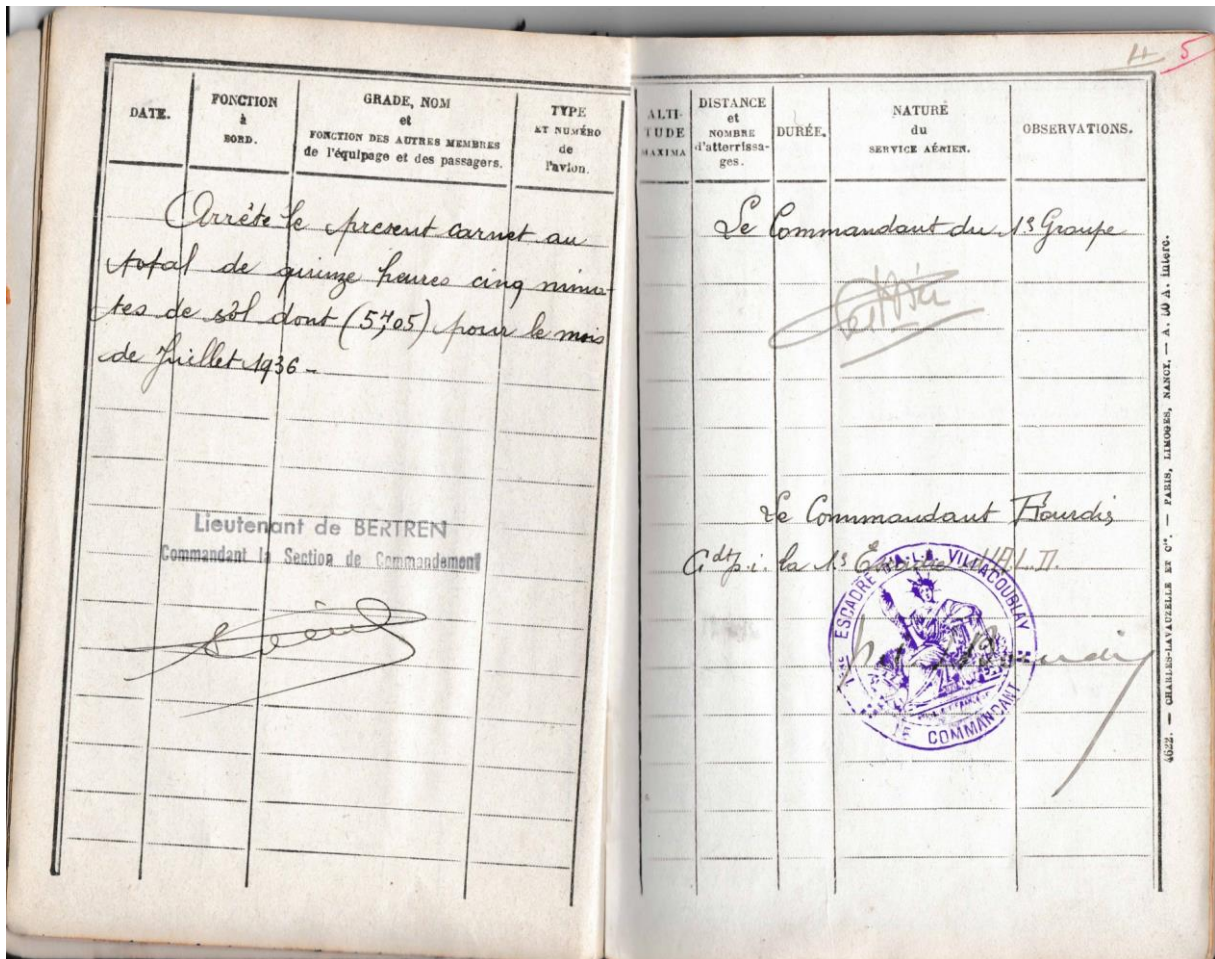 5
DATE.
FONCTION
à
BORD.
GRADE, NOM
et
FONCTION DES AUTRES MEMBRES
de l'équipage et des passagers.
TYPE
ET NUMÉRO
de
l'avion.
Arrêté le present carnet au
total de quinze heures cinq minu-
tes de sol dont (5H,05) pour le mois
de Juillet 1936 -
Lieutenant de BERTREN
Commandant la Section de Commandement
ALTI-
TUDE
MAXIMA
DISTANCE
et
NOMBRE
d'atterrissa-
ges.
DURÉE.
NATURE
du
SERVICE AÉRIEN.
OBSERVATIONS.
Le Commandant du 1s Groupe
Le Commandant
Cdt p.i. la 1s
ESCADRE VILLACOUBLAY
COMMANDANT
4622. — CHARLES-LAVAUZELLE ET Cie. — PARIS, LIMOGES, NANCY. — A. 50 A. interc.